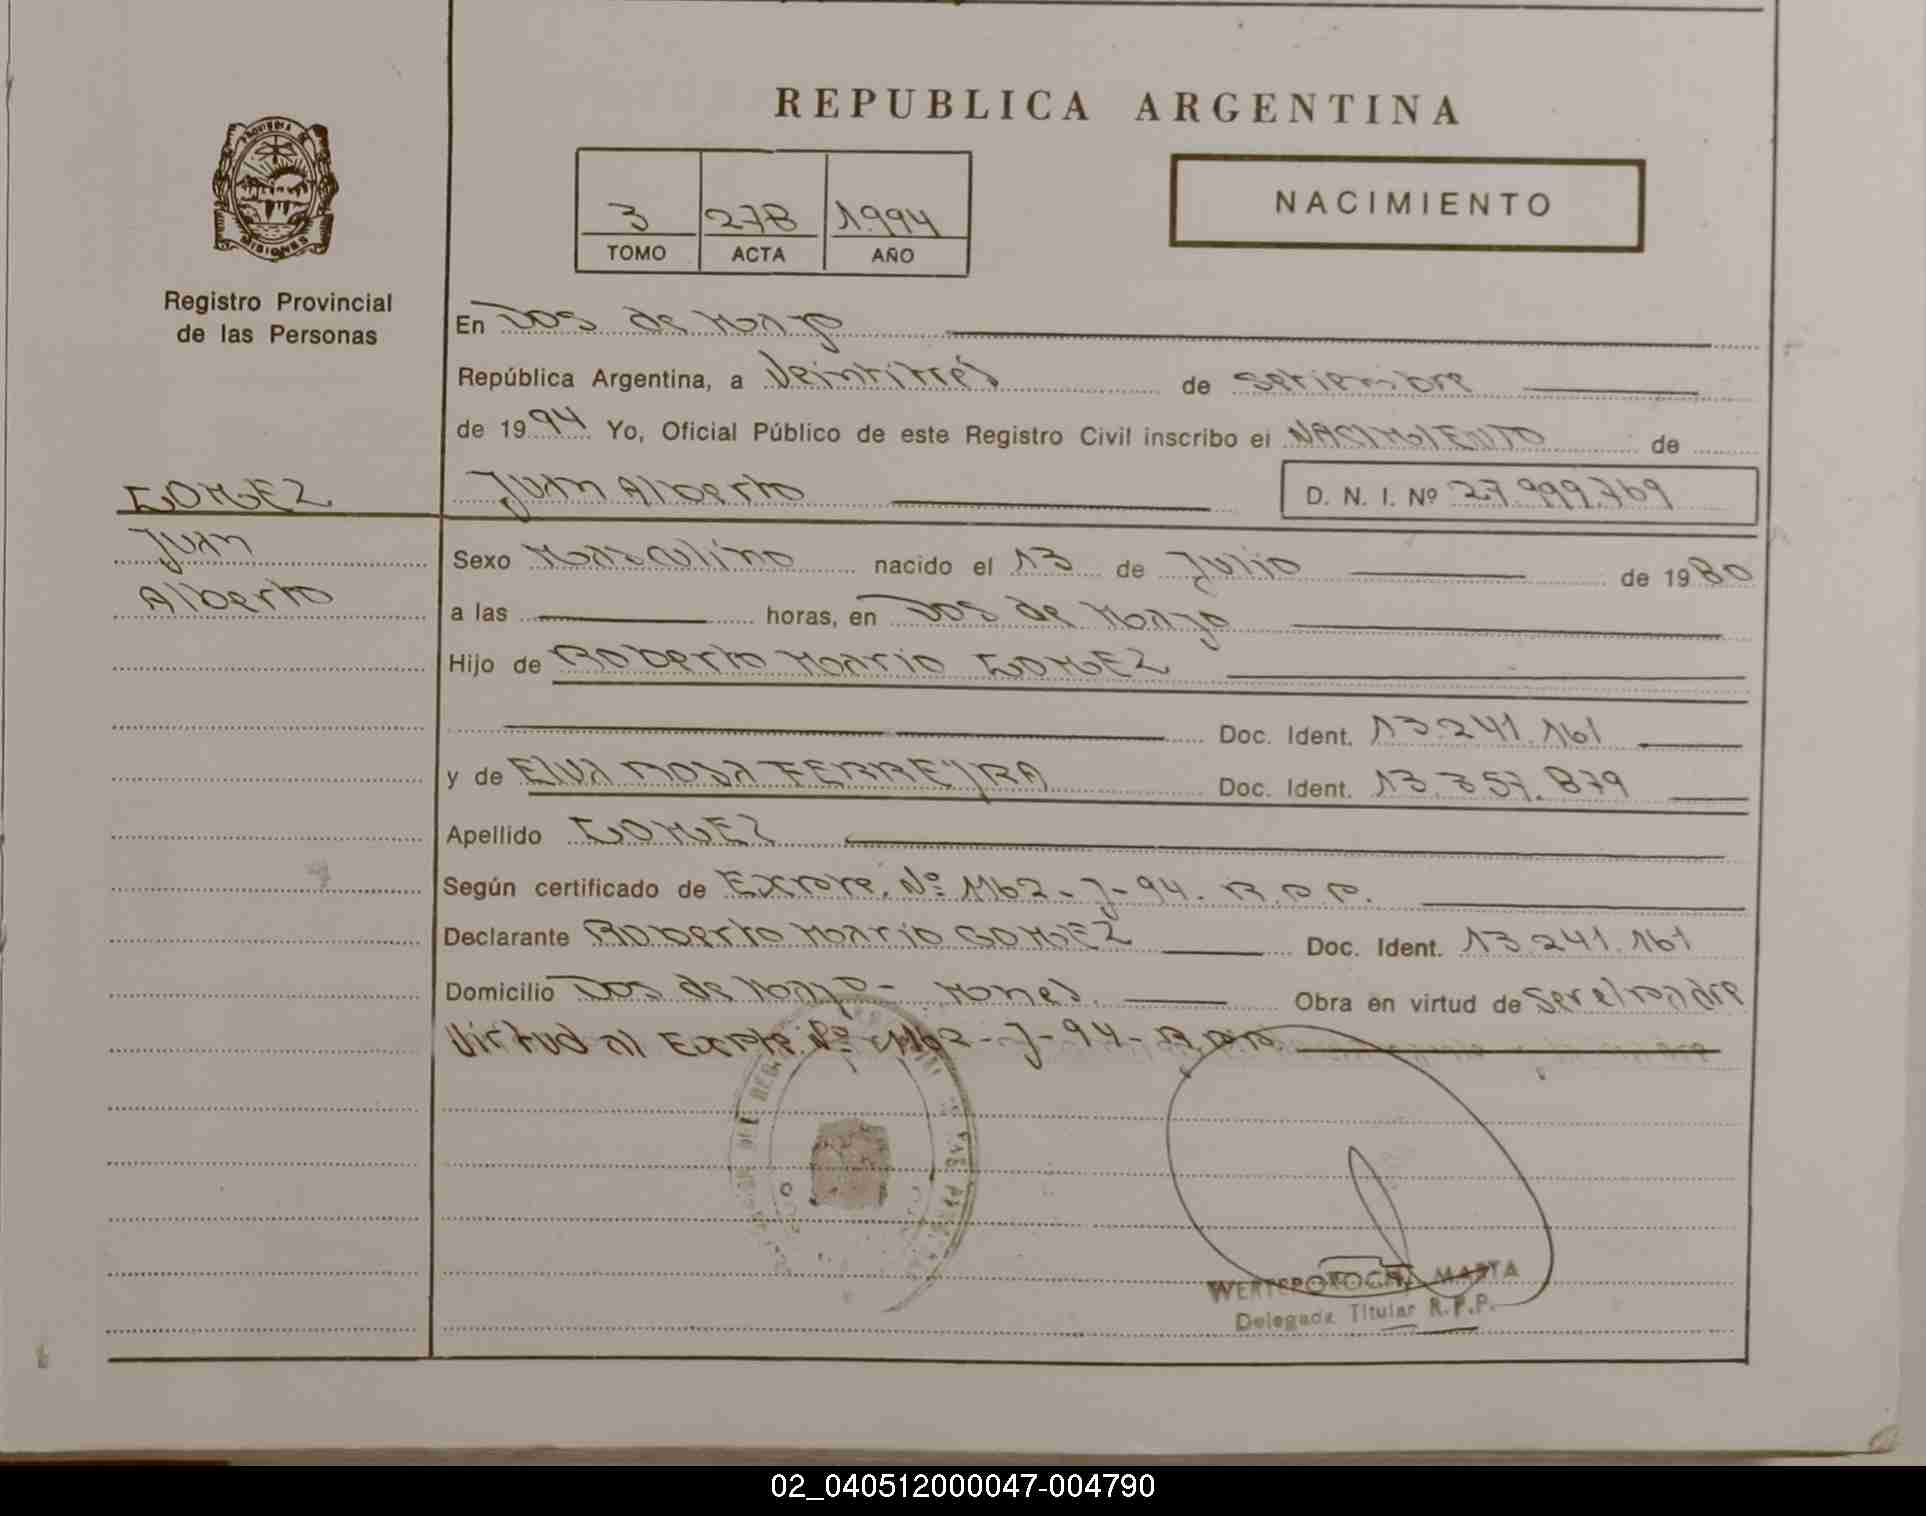 REPUBLICA ARGENTINA
PROVINCIA DE
MISIONES
Registro Provincial
de las Personas
3 278 1.994
TOMO ACTA AÑO
NACIMIENTO
En Dos de Mayo
República Argentina, a Veintitres de Setiembre
de 1994 Yo, Oficial Público de este Registro Civil inscribo el NACIMIENTO de
GOMEZ
Juan Alberto D. N. I. Nº 27.999.769
Juan
Alberto
Sexo Masculino nacido el 13 de Julio de 1980
a las horas, en Dos de Mayo
Hijo de Roberto Mario GOMEZ
Doc. Ident. 13.241.161
y de Elva Rosa FERREYRA Doc. Ident. 13.357.879
Apellido GOMEZ
Según certificado de Expte. Nº 1162-J-94. R.P.P.
Declarante Roberto Mario GOMEZ Doc. Ident. 13.241.161
Domicilio Dos de Mayo - Mnes. Obra en virtud de ser el padre
Virtud al Expte Nº 1162-J-94-R.P.P.
MARTA
Delegada Titular R.P.P.
02_040512000047-004790